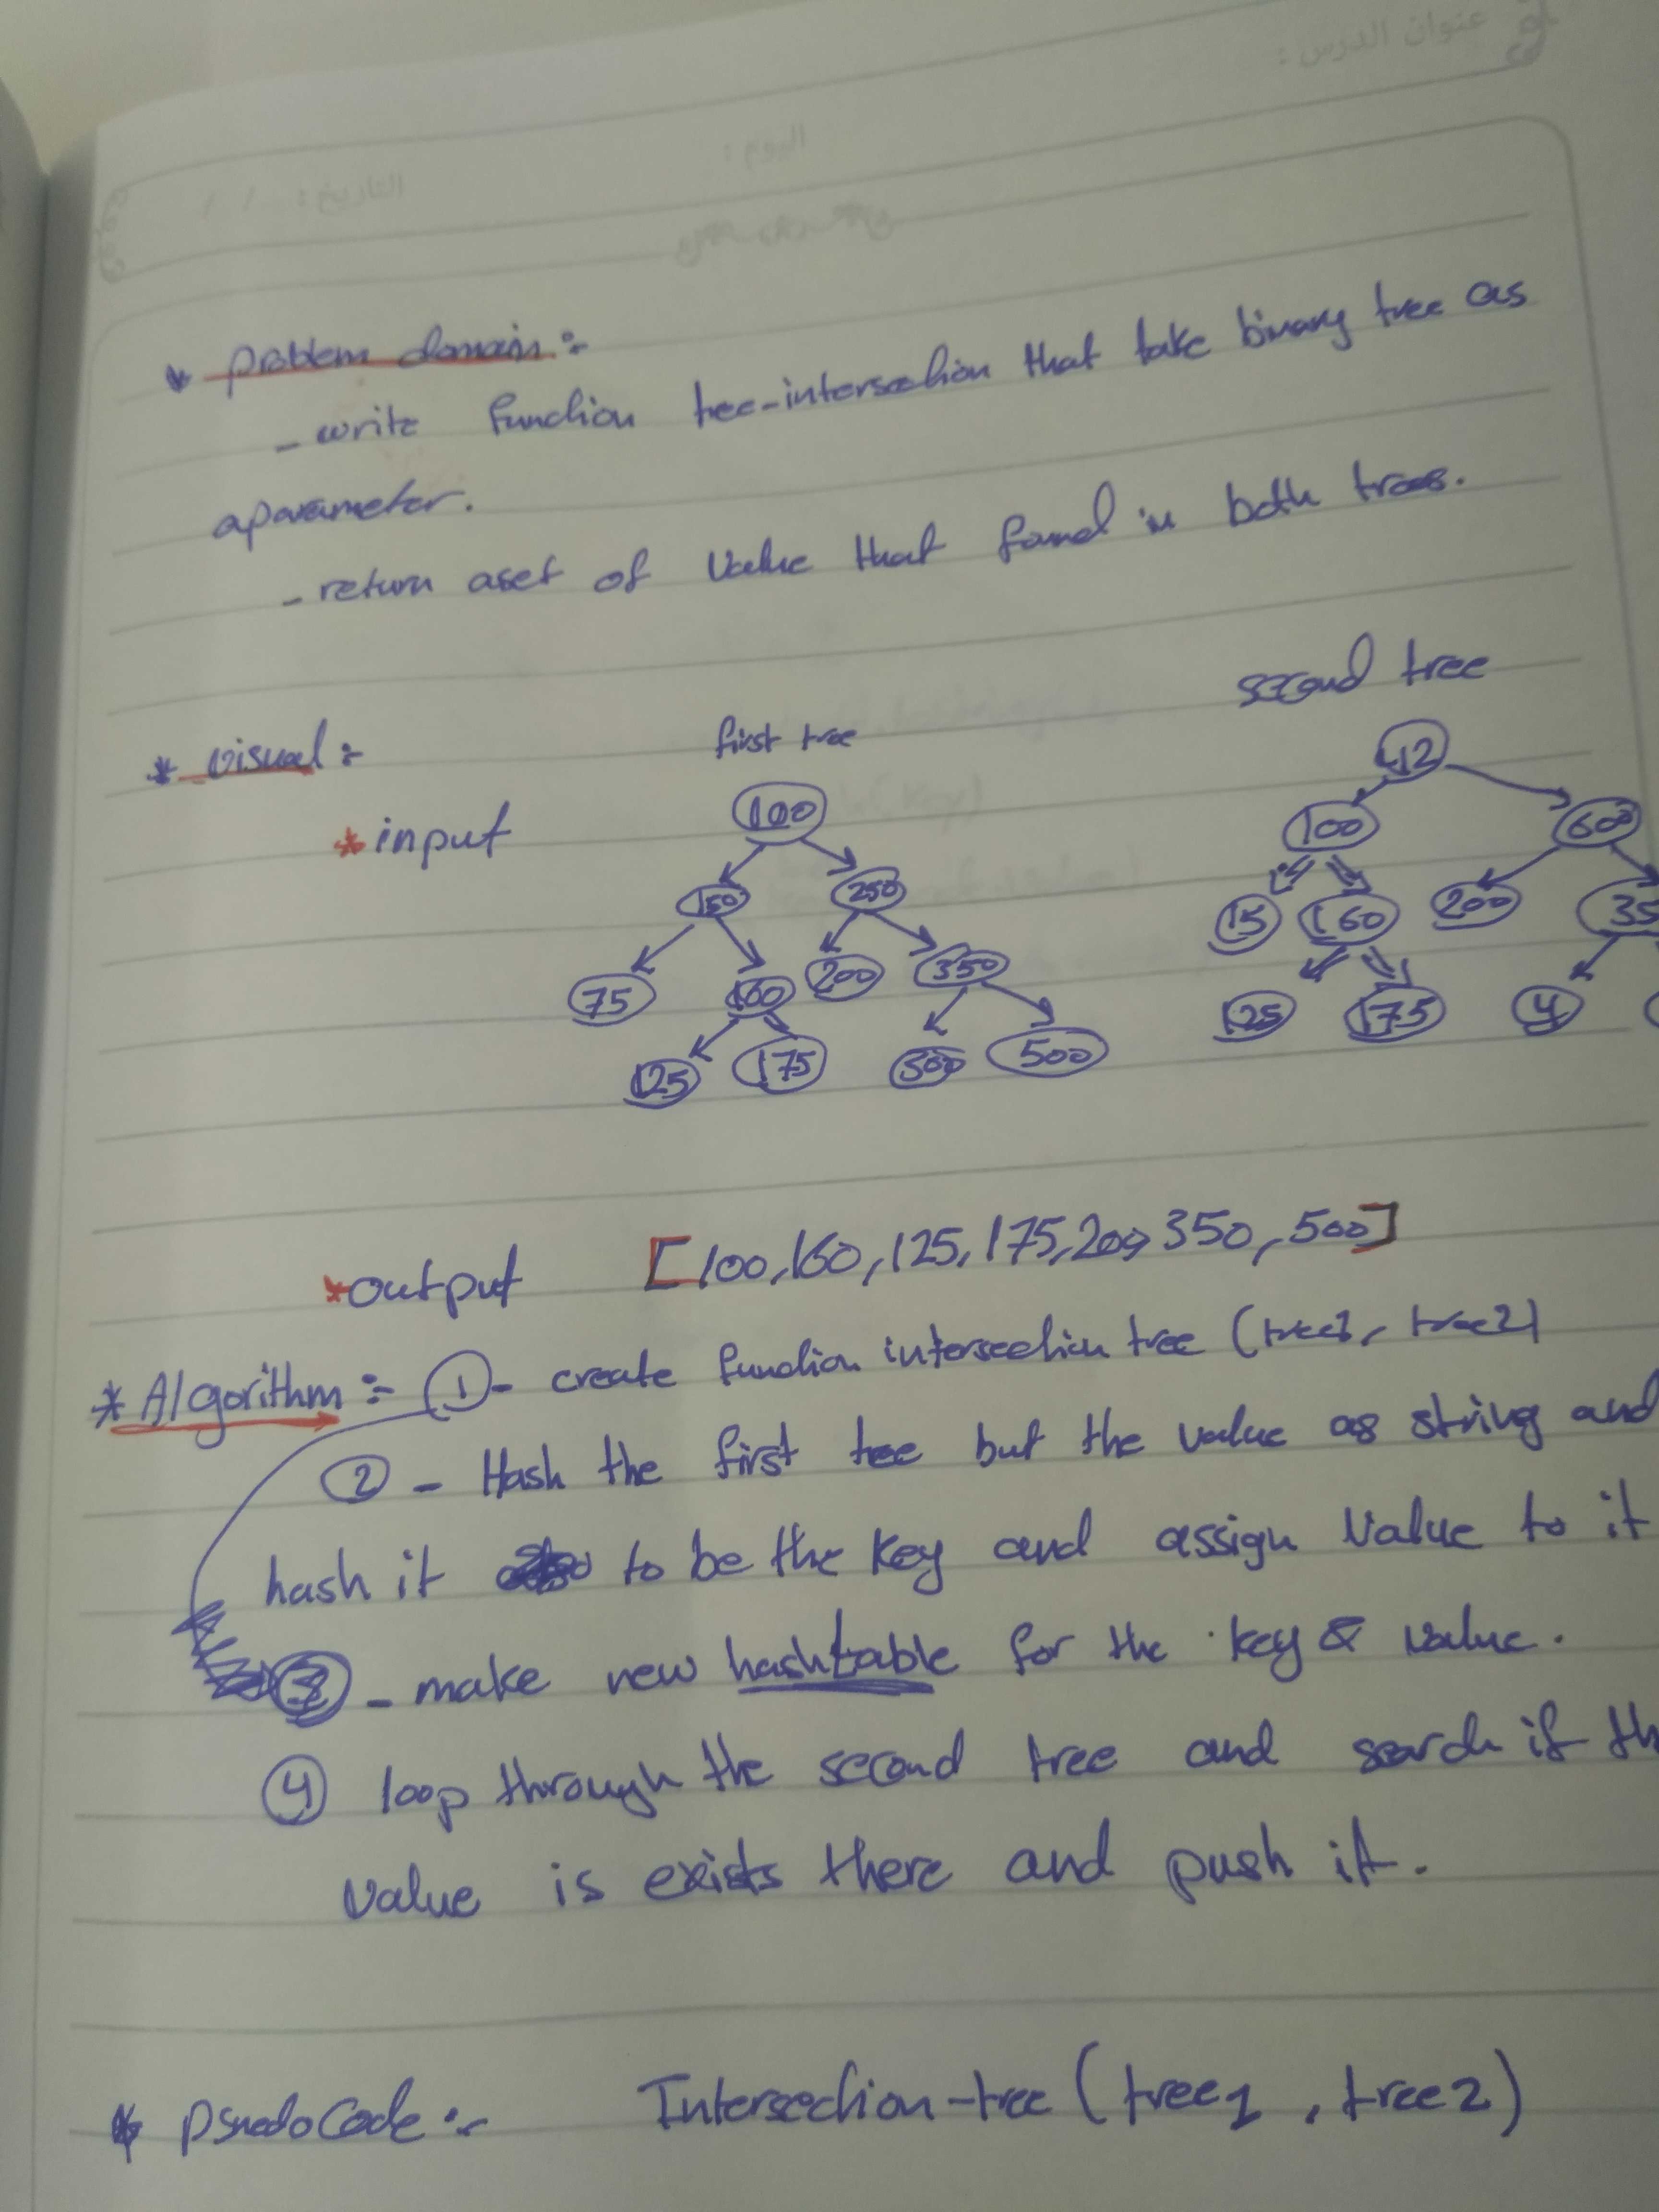 عنوان الدرس :
اليوم :
التاريخ : / /
* problem domain :-
- write function tree-intersection that take binary tree as
aparameter.
- return aset of value that found in both trees.
second tree
* visual :-
first tree
* input
100
42
150 250
100 600
75 160 200 350
15 160 200 35
125 175 300 500
125 175 4
* output [100,160,125,175,200,350,500]
* Algorithm :- 1 - create function intersection tree (tree1, tree2)
2 - Hash the first tree but the value as string and
hash it to be the key and assign value to it
3 - make new hashtable for the key & value.
4 loop through the second tree and search if th
value is exists there and push it.
* PsuedoCode :- Intersection-tree (tree1, tree2)